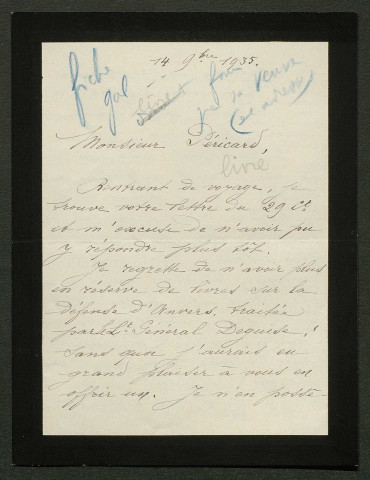 14 9bre 1935.
fiche
gal
par sa veuve
Monsieur Péricard,
livre
Rentrant de voyage, je
trouve votre lettre du 29 ct
et m'excuse de n'avoir pu
y répondre plus tôt.
Je regrette de n'avoir plus
en réserve de livres sur la
défense d'Anvers, traitée
par le Lt Général Deguise,
sans quoi j'aurais eu
grand plaisir à vous en
offrir un. Je n'en possè-